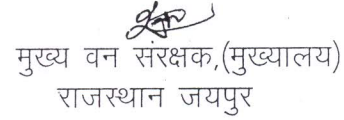 मुख्य वन संरक्षक,(मुख्यालय)
राजस्थान जयपुर